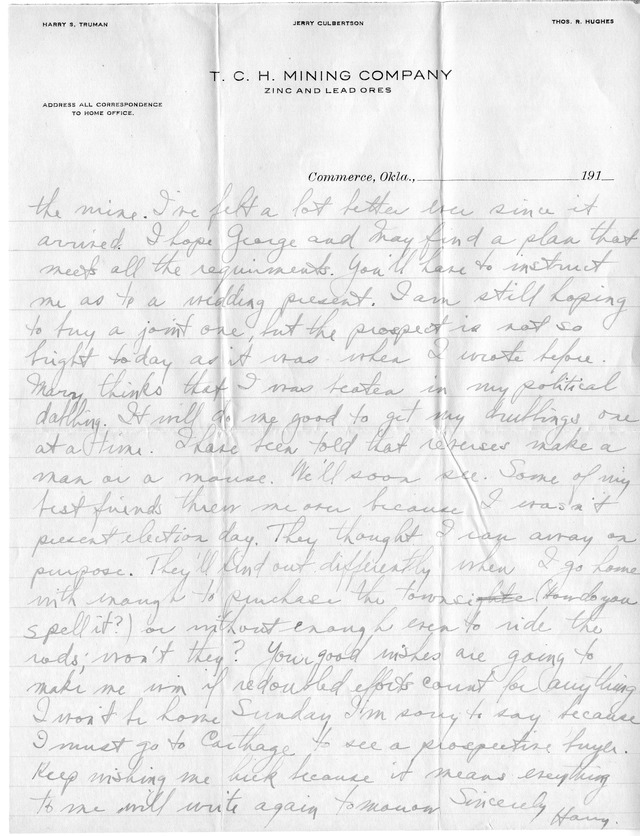 HARRY S. TRUMAN JERRY CULBERTSON THOS. R. HUGHES
T. C. H. MINING COMPANY
ZINC AND LEAD ORES
ADDRESS ALL CORRESPONDENCE
TO HOME OFFICE.
Commerce, Okla., 191
the mine. I've felt a lot better ever since it
arrived. I hope George and May find a plan that
meets all the requirments. You'll have to instruct
me as to a wedding present. I am still hoping
to buy a joint one, but the prospect is not so
bright today as it was when I wrote before.
Mary thinks that I was beaten in my political
dabbling. It will do me good to get my drubbings one
at a time. I have been told that reverses make a
man or a mouse. We'll soon see. Some of my
best friends threw me over because I wasn't
present election day. They thought I ran away on
purpose. They'll find out differently when I go home
with enough to purchase the townsight (How do you
spell it?) or without enough even to ride the
rods; won't they? Your good wishes are going to
make me win if redoubled efforts count for anything
I won't be home Sunday I'm sorry to say because
I must go to Carthage to see a prospective buyer.
Keep wishing me luck because it means everything
to me will write again tomorrow Sincerely Harry.